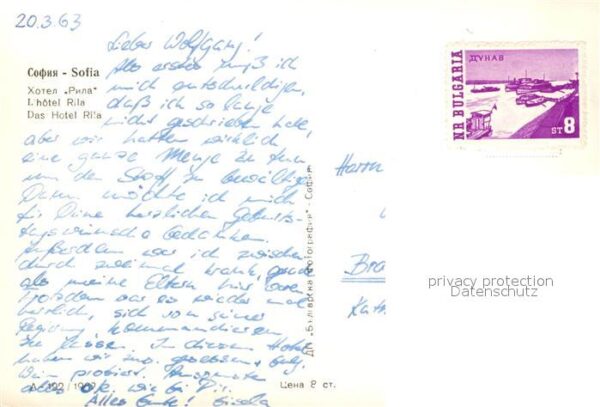 20.3.63
София - Sofia
Хотел „Рила"
L'hôtel Rila
Das Hotel Rila
Lieber Wolfgang!
Als erstes muß ich
mich entschuldigen,
daß ich so lange
nicht geschrieben habe,
aber wir hatten wirklich
eine ganze Menge zu tun
um den Stoff zu bewältigen.
Dann möchte ich mich
für Deine herzlichen Geburts-
tagswünsche bedanken.
Außerdem war ich zwischen-
durch zweimal krank, gerade
als meine Eltern hier waren.
Trotzdem war es wieder mal
herrlich, sich von seiner
Regierung
zu lassen. In diesem Hotel
haben wir
Wein probiert. Ansonsten
alles o.k. wie bei Dir.
Alles Gute! Gisela
ДП „Българска фотография" - София
Цена 8 ст.
NR BULGARIA
ДУНАВ
ST 8
Herrn
Bra
privacy protection
Datenschutz